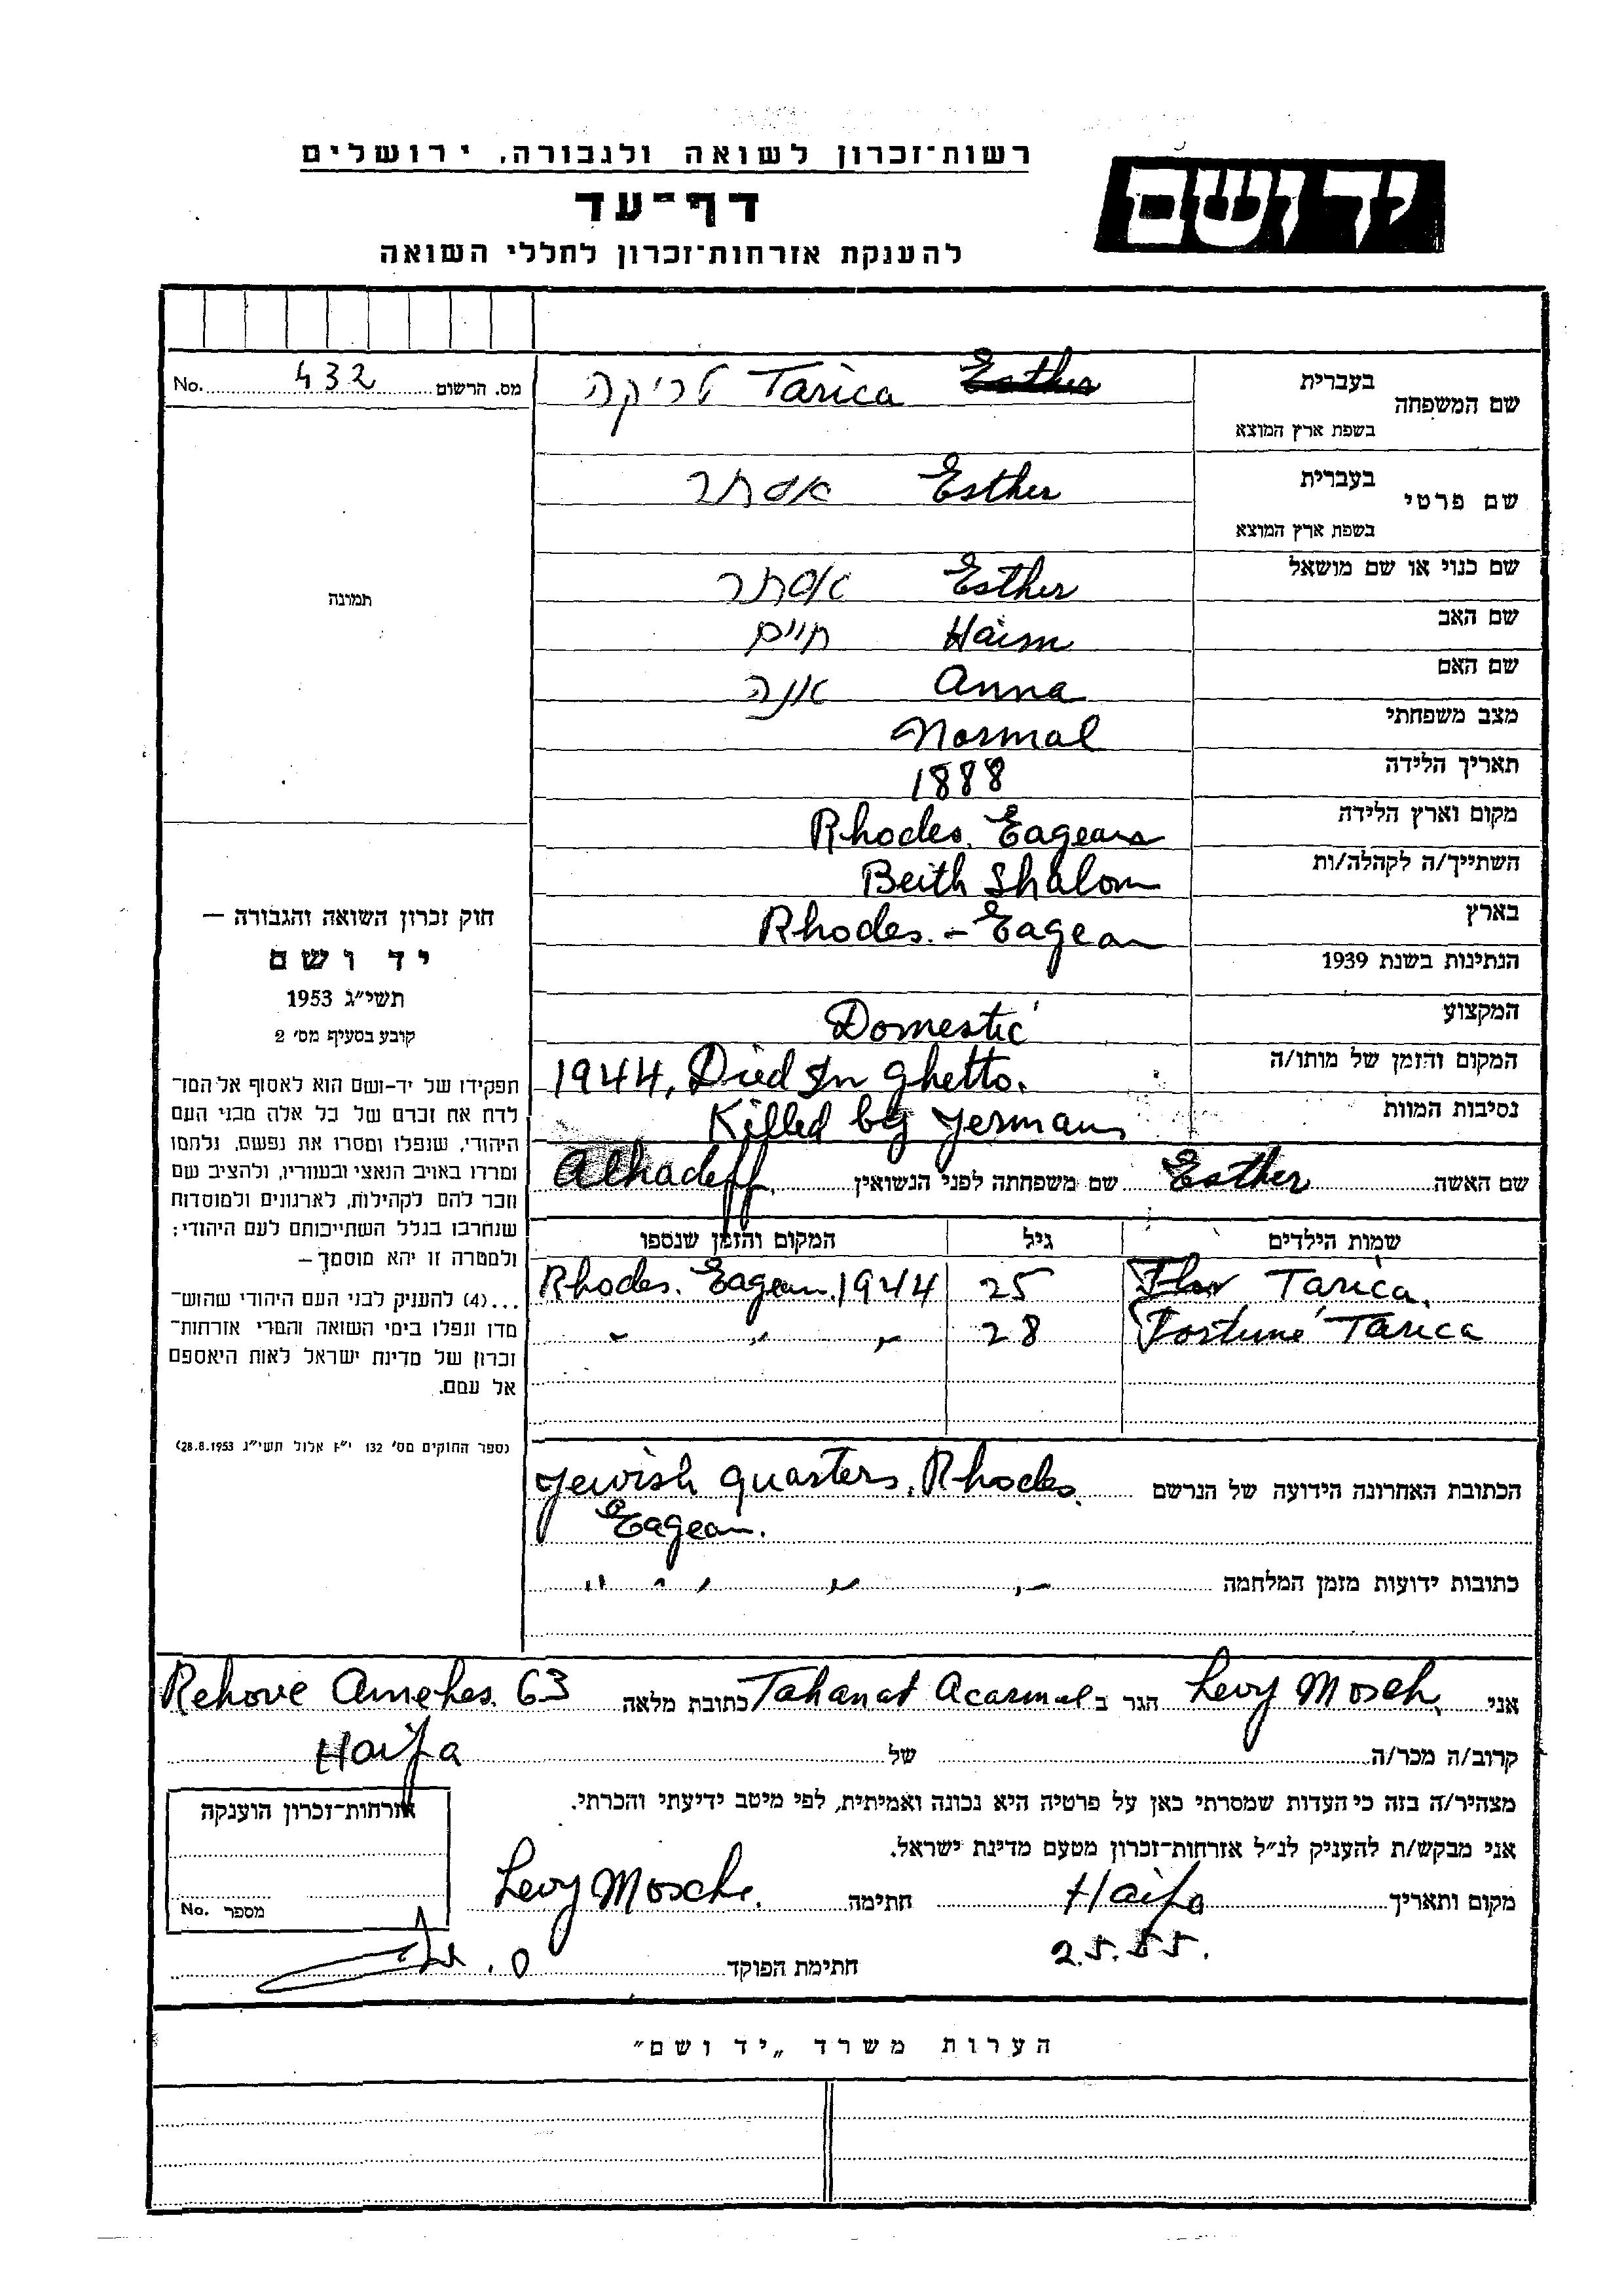 רשות־זכרון לשואה ולגבורה, ירושלים
יד ושם
דף־עד
להענקת אזרחות־זכרון לחללי השואה
מס. הרשום 432 No.
שם המשפחה בעברית טריקה Tarica Esther
בשפת ארץ המוצא
שם פרטי בעברית אסתר Esther
בשפת ארץ המוצא
שם כנוי או שם מושאל אסתר Esther
שם האב חיים Haim
שם האם אנה Anna
מצב משפחתי Normal
תאריך הלידה 1888
מקום וארץ הלידה Rhodes. Eagean
השתייך/ה לקהלה/ות Beith Shalom
בארץ Rhodes. - Eagean
הנתינות בשנת 1939
המקצוע Domestic
המקום והזמן של מותו/ה 1944, Died In ghetto.
נסיבות המוות Killed by Jermans
שם האשה Esther שם משפחתה לפני הנשואין Alhadeff.
שמות הילדים גיל המקום והזמן שנספו
Flor Tarica. 25 Rhodes. Eagean. 1944
Fortuné Tarica 28 " " "
הכתובת האחרונה הידועה של הנרשם Jewish quarters. Rhodes.
Eagean.
כתובות ידועות מזמן המלחמה " " " " "
תמונה
חוק זכרון השואה והגבורה —
יד ושם
תשי״ג 1953
קובע בסעיף מס׳ 2
תפקידו של יד-ושם הוא לאסוף אל המו־
לדת את זכרם של כל אלה מבני העם
היהודי, שנפלו ומסרו את נפשם, נלחמו
ומרדו באויב הנאצי ובעוזריו, ולהציב שם
וזכר להם לקהילות, לארגונים ולמוסדות
שנחרבו בגלל השתייכותם לעם היהודי;
ולמטרה זו יהא מוסמך—
...(4) להעניק לבני העם היהודי שהוש־
מדו ונפלו בימי השואה והמרי אזרחות־
זכרון של מדינת ישראל לאות היאספם
אל עמם.
(ספר החוקים מס׳ 132 י״ז אלול תשי״ג 28.8.1953)
אני Levy Mosch. הגר ב Tahanat Acarmel כתובת מלאה Rehove Amehes. 63
קרוב/ה מכר/ה של Haifa
מצהיר/ה בזה כי העדות שמסרתי כאן על פרטיה היא נכונה ואמיתית, לפי מיטב ידיעתי והכרתי.
אני מבקש/ת להעניק לנ״ל אזרחות־זכרון מטעם מדינת ישראל.
מקום ותאריך Haifa חתימה Levy Mosche.
2.5.55.
חתימת הפוקד
אזרחות־זכרון הוענקה
מספר No.
הערות משרד „יד ושם״